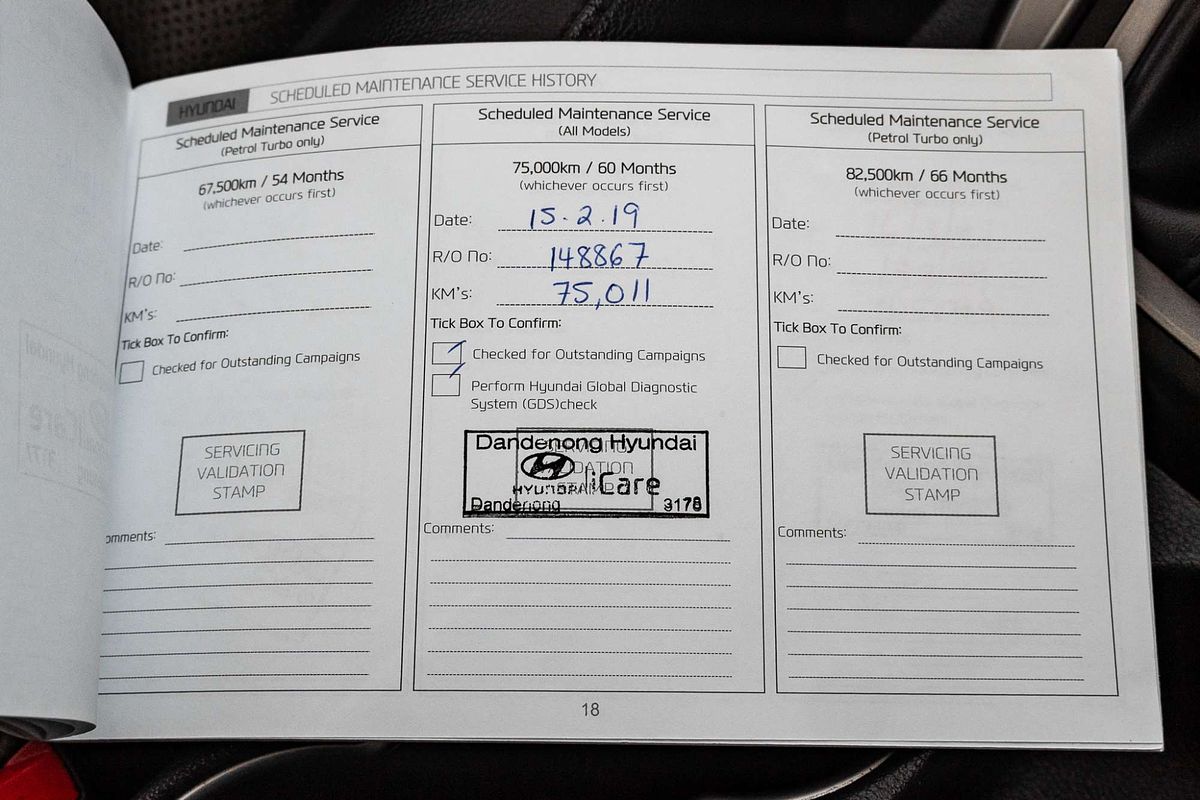 HYUNDAI
SCHEDULED MAINTENANCE SERVICE HISTORY
Scheduled Maintenance Service
(Petrol Turbo only)
67,500km / 54 Months
(whichever occurs first)
Date:
R/O No:
KM's:
Tick Box To Confirm:
Checked for Outstanding Campaigns
SERVICING
VALIDATION
STAMP
omments:
Scheduled Maintenance Service
(All Models)
75,000km / 60 Months
(whichever occurs first)
Date: 15.2.19
R/O No: 148867
KM's: 75,011
Tick Box To Confirm:
Checked for Outstanding Campaigns
Perform Hyundai Global Diagnostic
System (GDS)check
SERVICING
VALIDATION
STAMP
Dandenong Hyundai
HYUNDAI iCare
Dandenong
Comments:
Scheduled Maintenance Service
(Petrol Turbo only)
82,500km / 66 Months
(whichever occurs first)
Date:
R/O No:
KM's:
Tick Box To Confirm:
Checked for Outstanding Campaigns
SERVICING
VALIDATION
STAMP
Comments:
18